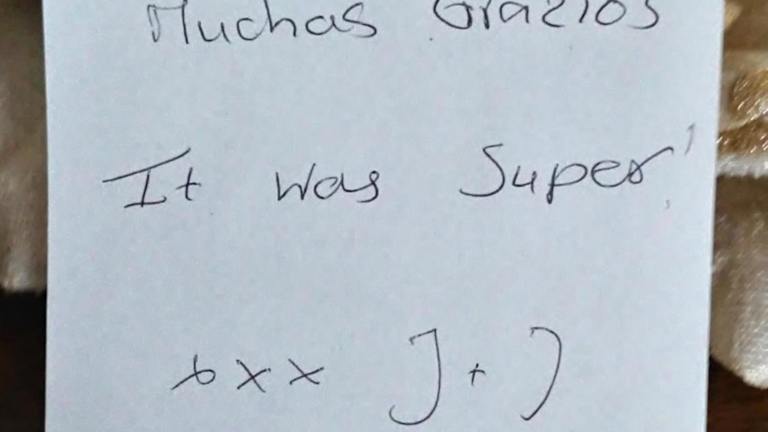 Muchas Grazios
It was Super!
xxx J + J